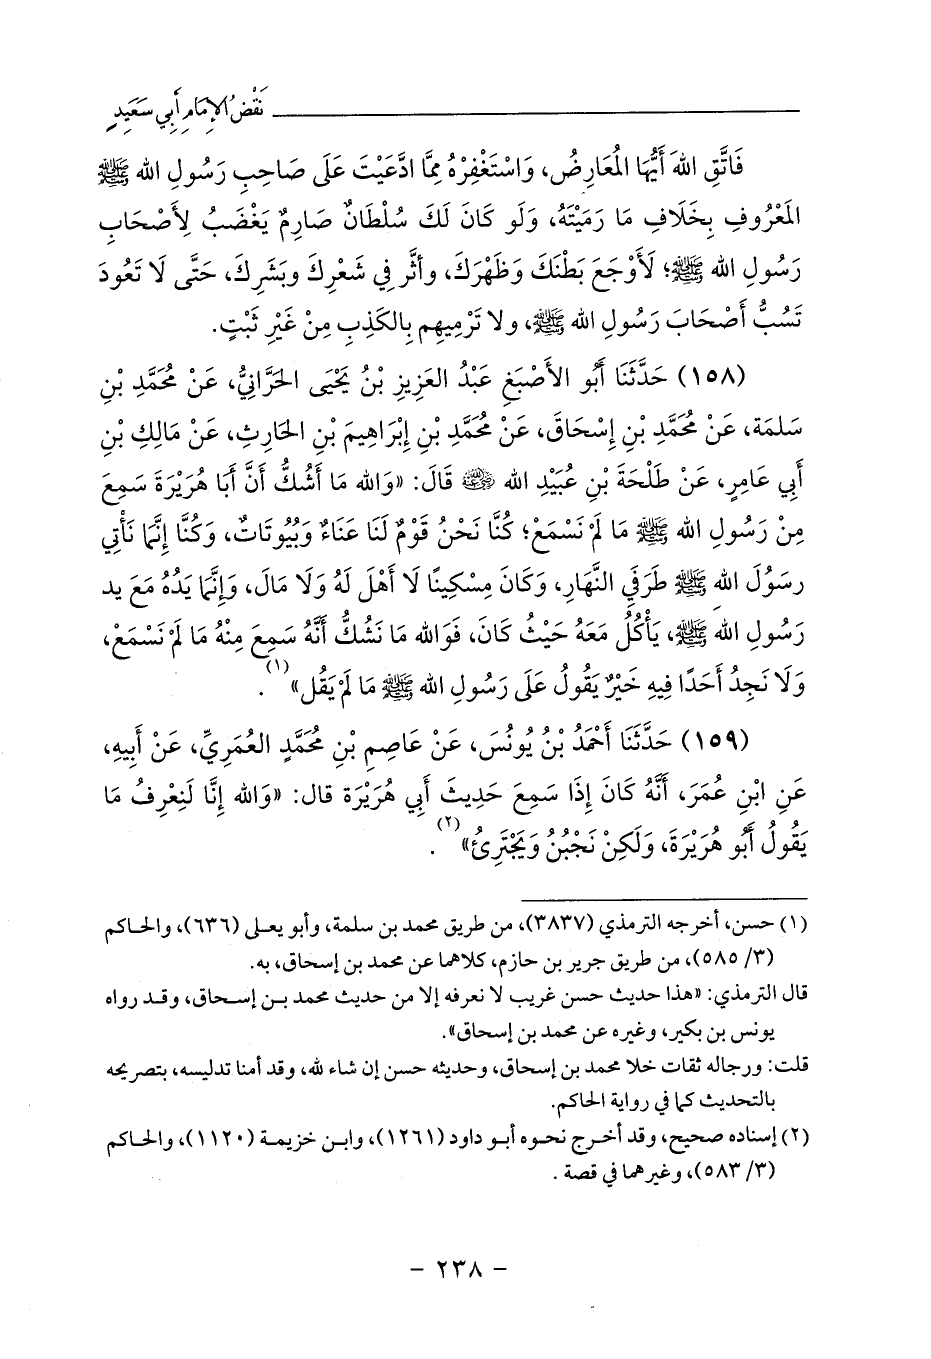 نَقْضُ الإِمَامِ أَبِي سَعَيدٍ
فَاتَّقِ اللهَ أَيُّهَا المُعَارِضُ، وَاسْتَغْفِرْهُ مِمَّا ادَّعَيْتَ عَلَى صَاحِبِ رَسُولِ الله ﷺ
المَعْرُوفِ بِخَلَافِ مَا رَمَيْتَهُ، وَلَو كَانَ لَكَ سُلْطَانٌ صَارِمٌ يَغْضَبُ لِأَصْحَابِ
رَسُولِ الله ﷺ؛ لَأَوْجَعَ بَطْنَكَ وَظَهْرَكَ، وأثَّر فِي شَعْرِكَ وبَشَرِكَ، حَتَّى لَا تَعُودَ
تَسُبُّ أَصْحَابَ رَسُولِ الله ﷺ، ولا تَرْمِيهِم بِالكَذِبِ مِنْ غَيْرِ ثَبْتٍ.
(١٥٨) حَدَّثَنَا أَبُو الأَصْبَغِ عَبْدُ العَزِيزِ بْنُ يَحْيَى الحَرَّانِيُّ، عَنْ مُحَمَّدِ بْنِ
سَلمَة، عَنْ مُحَمَّدِ بْنِ إِسْحَاقَ، عَنْ مُحَمَّدِ بْنِ إِبْرَاهِيمَ بْنِ الحَارِثِ، عَنْ مَالِكِ بْنِ
أَبِي عَامِرٍ، عَنْ طَلْحَةَ بْنِ عُبَيْدِ الله ﵁ قَالَ: «وَالله مَا أَشُكُّ أَنَّ أَبَا هُرَيْرَةَ سَمِعَ
مِنْ رَسُولِ الله ﷺ مَا لَمْ نَسْمَعْ؛ كُنَّا نَحْنُ قَوْمٌ لَنَا عَنَاءٌ وَبُيُوتَاتٌ، وَكُنَّا إِنَّمَا نَأْتِي
رسَوُلَ الله ﷺ طَرَفَيِ النَّهَارِ، وَكَانَ مِسْكِينًا لَا أَهْلَ لَهُ وَلَا مَالَ، وَإِنَّمَا يَدُهُ مَعَ يدِ
رَسُولِ الله ﷺ، يَأْكُلُ مَعَهُ حَيْثُ كَانَ، فَوَالله مَا نَشُكُّ أَنَّهُ سَمِعَ مِنْهُ مَا لَمْ نَسْمَعْ،
وَلَا نَجِدُ أَحَدًا فِيهِ خَيْرٌ يَقُولُ عَلَى رَسُولِ الله ﷺ مَا لَمْ يَقُل»(١).
(١٥٩) حَدَّثَنَا أَحْمَدُ بْنُ يُونُسَ، عَنْ عَاصِمِ بْنِ مُحَمَّدٍ العُمَرِيِّ، عَنْ أَبِيهِ،
عَنِ ابْنِ عُمَرَ، أَنَّهُ كَانَ إِذَا سَمِعَ حَدِيثَ أَبِي هُرَيْرَة قال: «وَالله إِنَّا لَنِعْرِفُ مَا
يَقُولُ أَبُو هُرَيْرَةَ، وَلَكِنْ نَجْبُنُ وَيَجْتَرِئُ»(٢).
(١) حسن، أخرجه الترمذي (٣٨٣٧)، من طريق محمد بن سلمة، وأبو يعلى (٦٣٦)، والحاكم
(٣/ ٥٨٥)، من طريق جرير بن حازم، كلاهما عن محمد بن إسحاق، به.
قال الترمذي: «هذا حديث حسن غريب لا نعرفه إلا من حديث محمد بن إسحاق، وقد رواه
يونس بن بكير، وغيره عن محمد بن إسحاق».
قلت: ورجاله ثقات خلا محمد بن إسحاق، وحديثه حسن إن شاء لله، وقد أمنا تدليسه، بتصريحه
بالتحديث كما في رواية الحاكم.
(٢) إسناده صحيح، وقد أخرج نحوه أبو داود (١٢٦١)، وابن خزيمة (١١٢٠)، والحاكم
(٣/ ٥٨٣)، وغيرهما في قصة .
- ٢٣٨ -